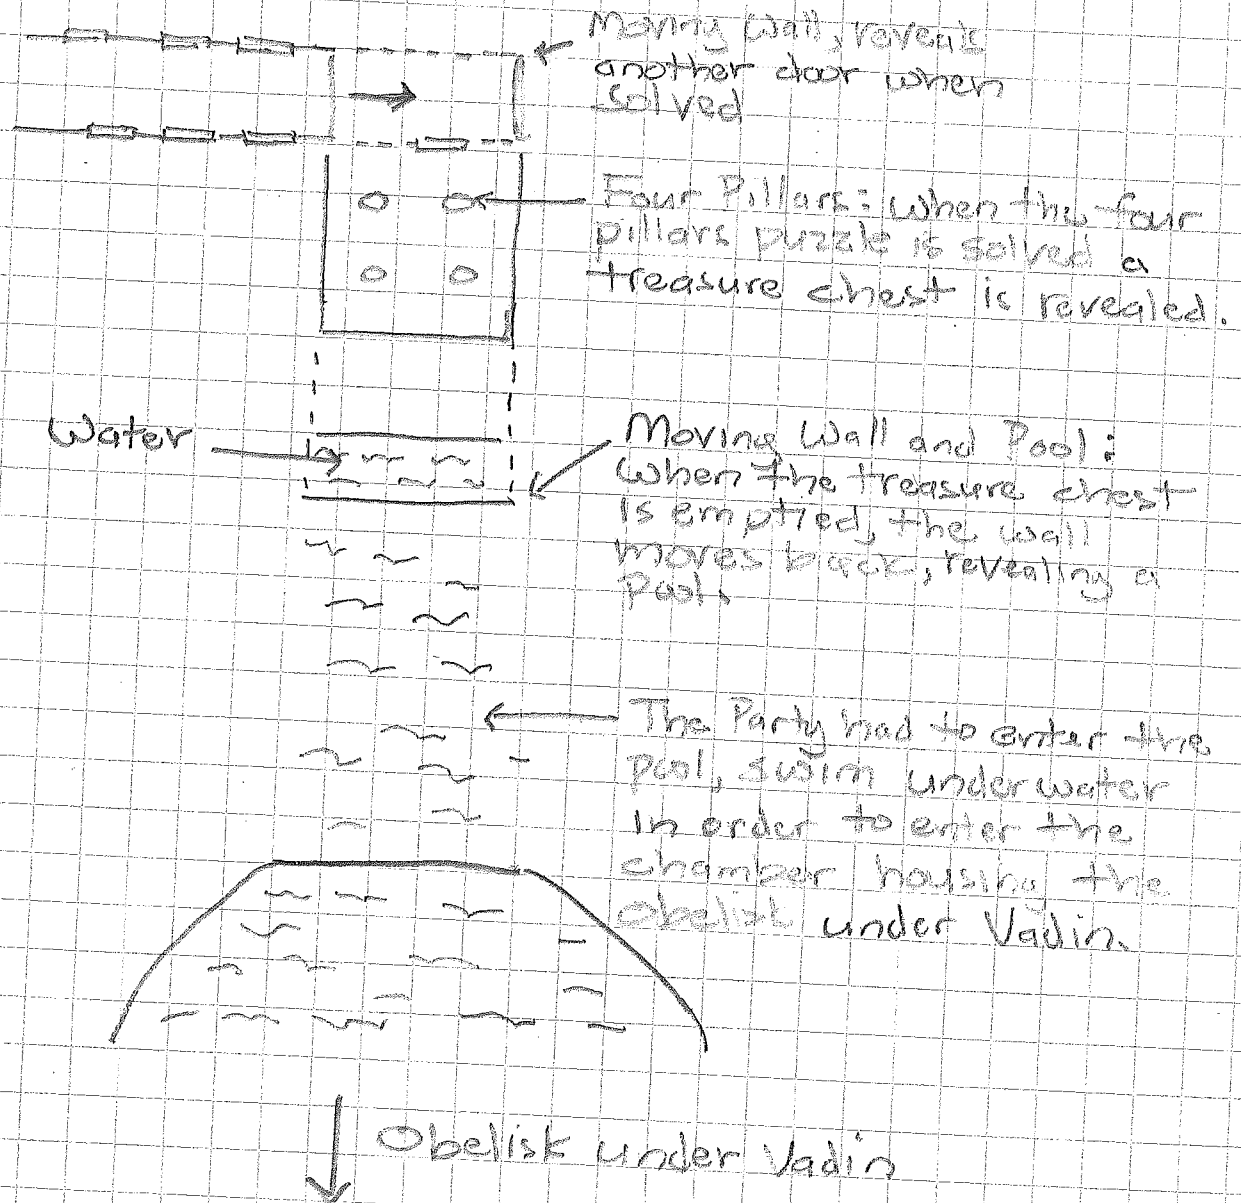 Moving Wall, reveals
another door when
solved
Four Pillars: when the four
pillars puzzle is solved a
treasure chest is revealed.
Water
Moving Wall and Pool:
when the treasure chest
is emptied, the wall
moves back, revealing a
pool.
The Party had to enter the
pool, swim underwater
in order to enter the
chamber housing the
Obelisk under Vadin.
Obelisk under Vadin